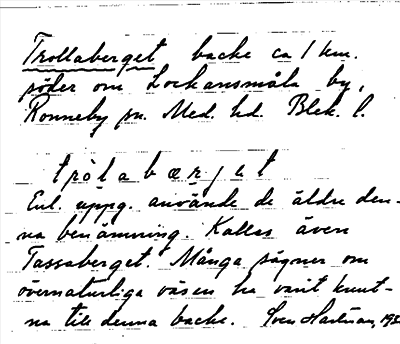 Trollaberget backe ca 1 km.
söder om Lockansmåla by,
Ronneby sn. Med. hd. Blek. l.
tròlabærjet
Enl. uppg. använde de äldre den-
na benämning. Kallas även
Tassaberget. Många sägner om
övernaturliga väsen ha varit knut-
na till denna backe. Sven